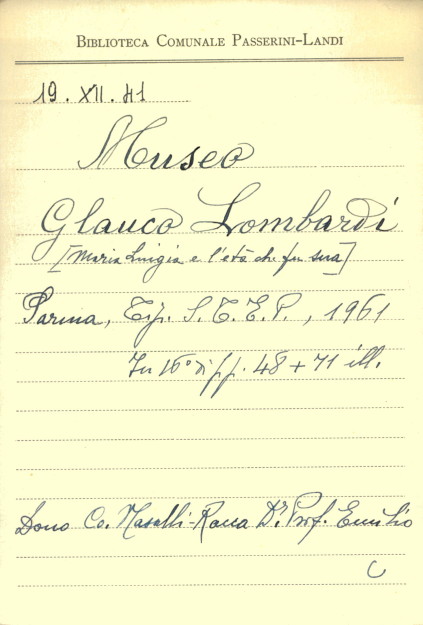 BIBLIOTECA COMUNALE PASSERINI-LANDI
19. XII. 41
Museo
Glauco Lombardi
[Maria Luigia e l'età che fu sua]
Parma, Tip. S.T.E.P., 1961
In 16° di pp. 48 + 71 ill.
Dono Co. Nasalli-Rocca Dr. Prof. Emilio
C